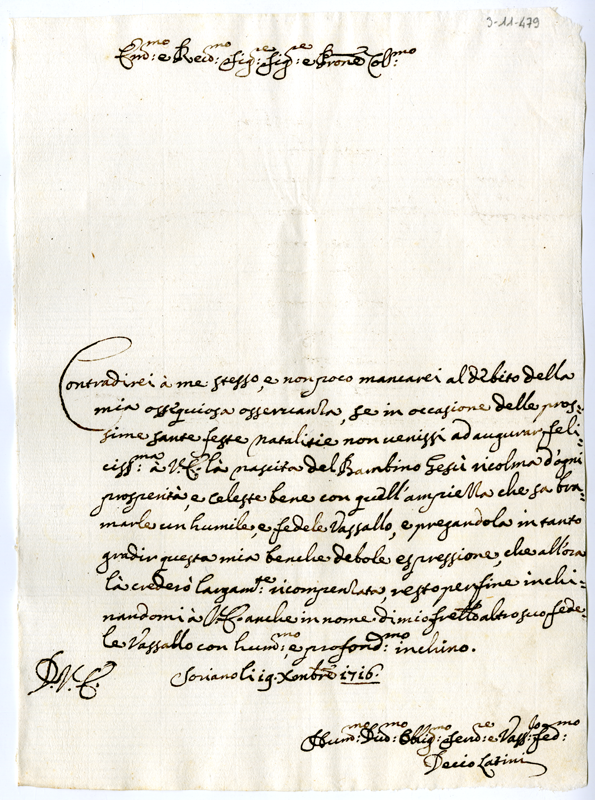 3-11-479
Em:mo e Reu:mo Sig:re Sig:re e Pron:e Col:mo
Contradirei à me stesso, e non poco mancarei al debito della
mia ossequiosa osseruanza, se in occasione delle pros=
sime sante feste natalitie non venissi ad augurar feli=
ciss:ma à V.E. là nascita del Bambino Gesù ricolma d'ogni
prosperità, e celeste bene con quell'ampiezza che sa bra=
marle un humile, e fedele Vassallo, e pregandola in tanto
gradir questa mia benche debole espressione, che all'ora
là crederò largam:te ricompensata, resto per fine inchi=
nandomi à V.E. anche in nome di mio fratello altro suo fede=
le Vassallo con hum:mo, e profond:mo inchino.
D. V. E. Soriano li 19. Xombre 1716.
Hum:mo Diu:mo Oblig:mo Seru:re e Vass:lo fed:mo
Decio Latini